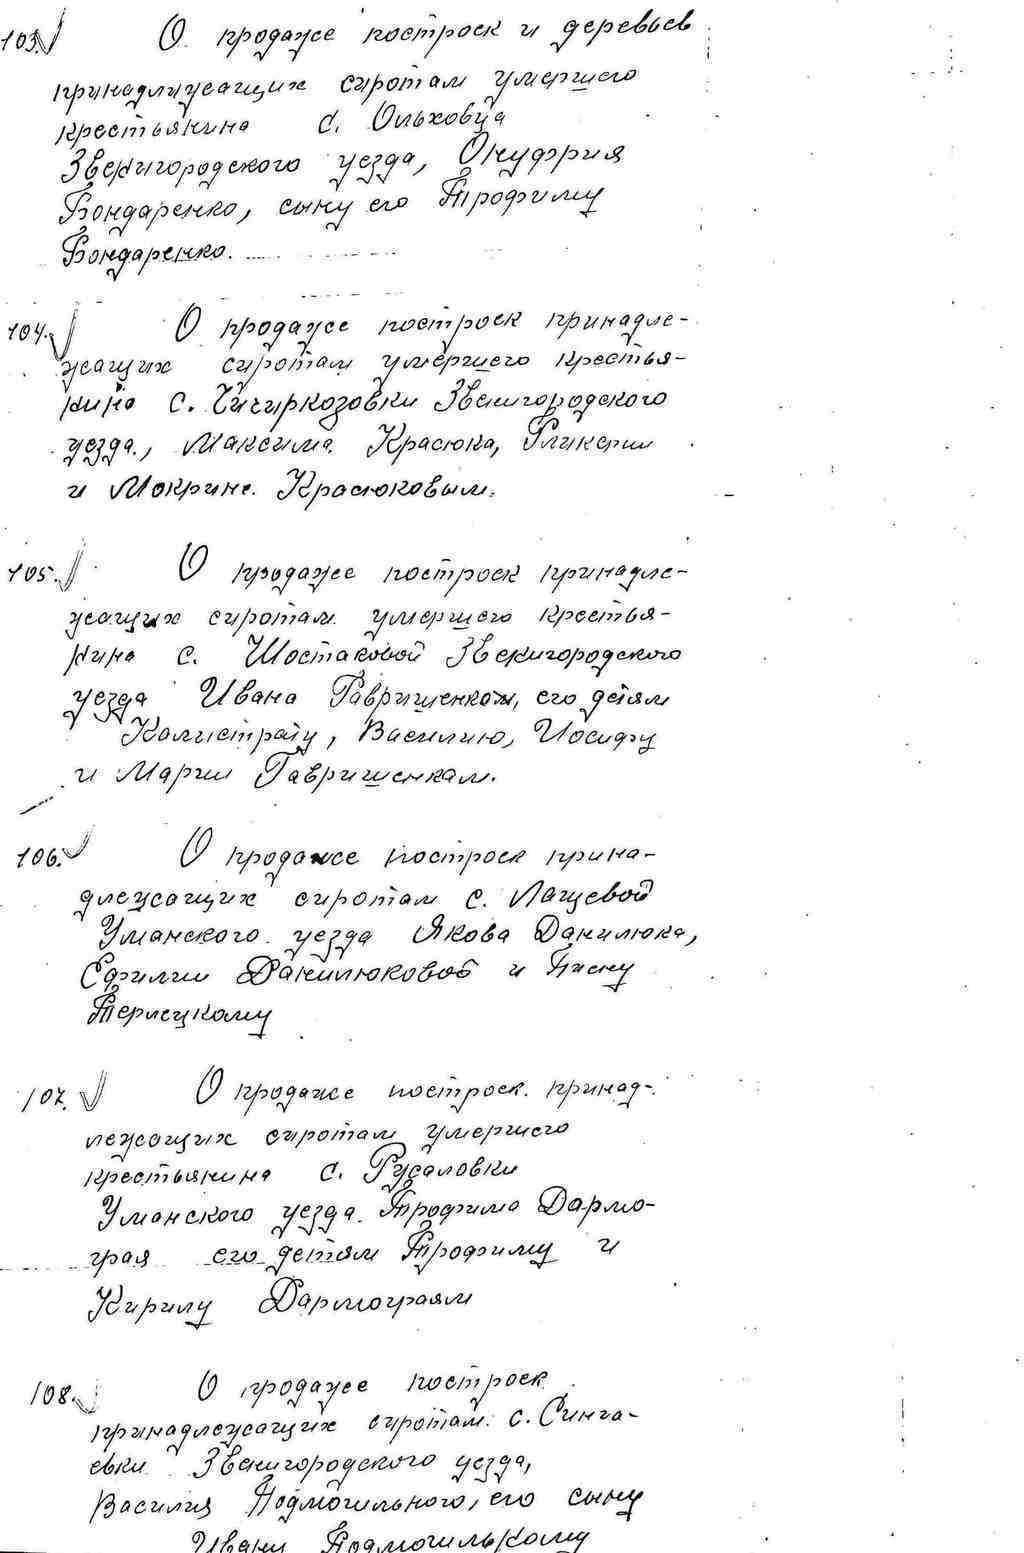 103. О продаже построек и деревьев
принадлежащих сиротам умершего
крестьянина с. Ольховца
Звенигородского уезда, Онуфрия
Бондаренко, сыну его Трофиму
Бондаренко.
104. О продаже построек принадле-
жащих сиротам умершего крестья-
нина с. Чичиркозовки Звенигородского
уезда, Максима Красюка, Гликерии
и Мокрине Красюковым.
105. О продаже построек принадле-
жащих сиротам умершего крестья-
нина с. Шостаковой Звенигородского
уезда Ивана Гавришенком, его детям
Калистрату, Василию, Иосифу
и Марии Гавришенкам.
106. О продаже построек прина-
длежащих сиротам с. Лащевой
Уманского уезда Якова Данилюка,
Ефимии Данилюковой и
Терлецкому
107. О продаже построек принад-
лежащих сиротам умершего
крестьянина с. Русаловки
Уманского уезда Трофима Дармо-
грая его детям Трофиму и
Кирилу Дармограям
108. О продаже построек
принадлежащих сиротам с.
евки Звенигородского уезда,
Василия Подмогильного, его сыну
Ивану Подмогильному